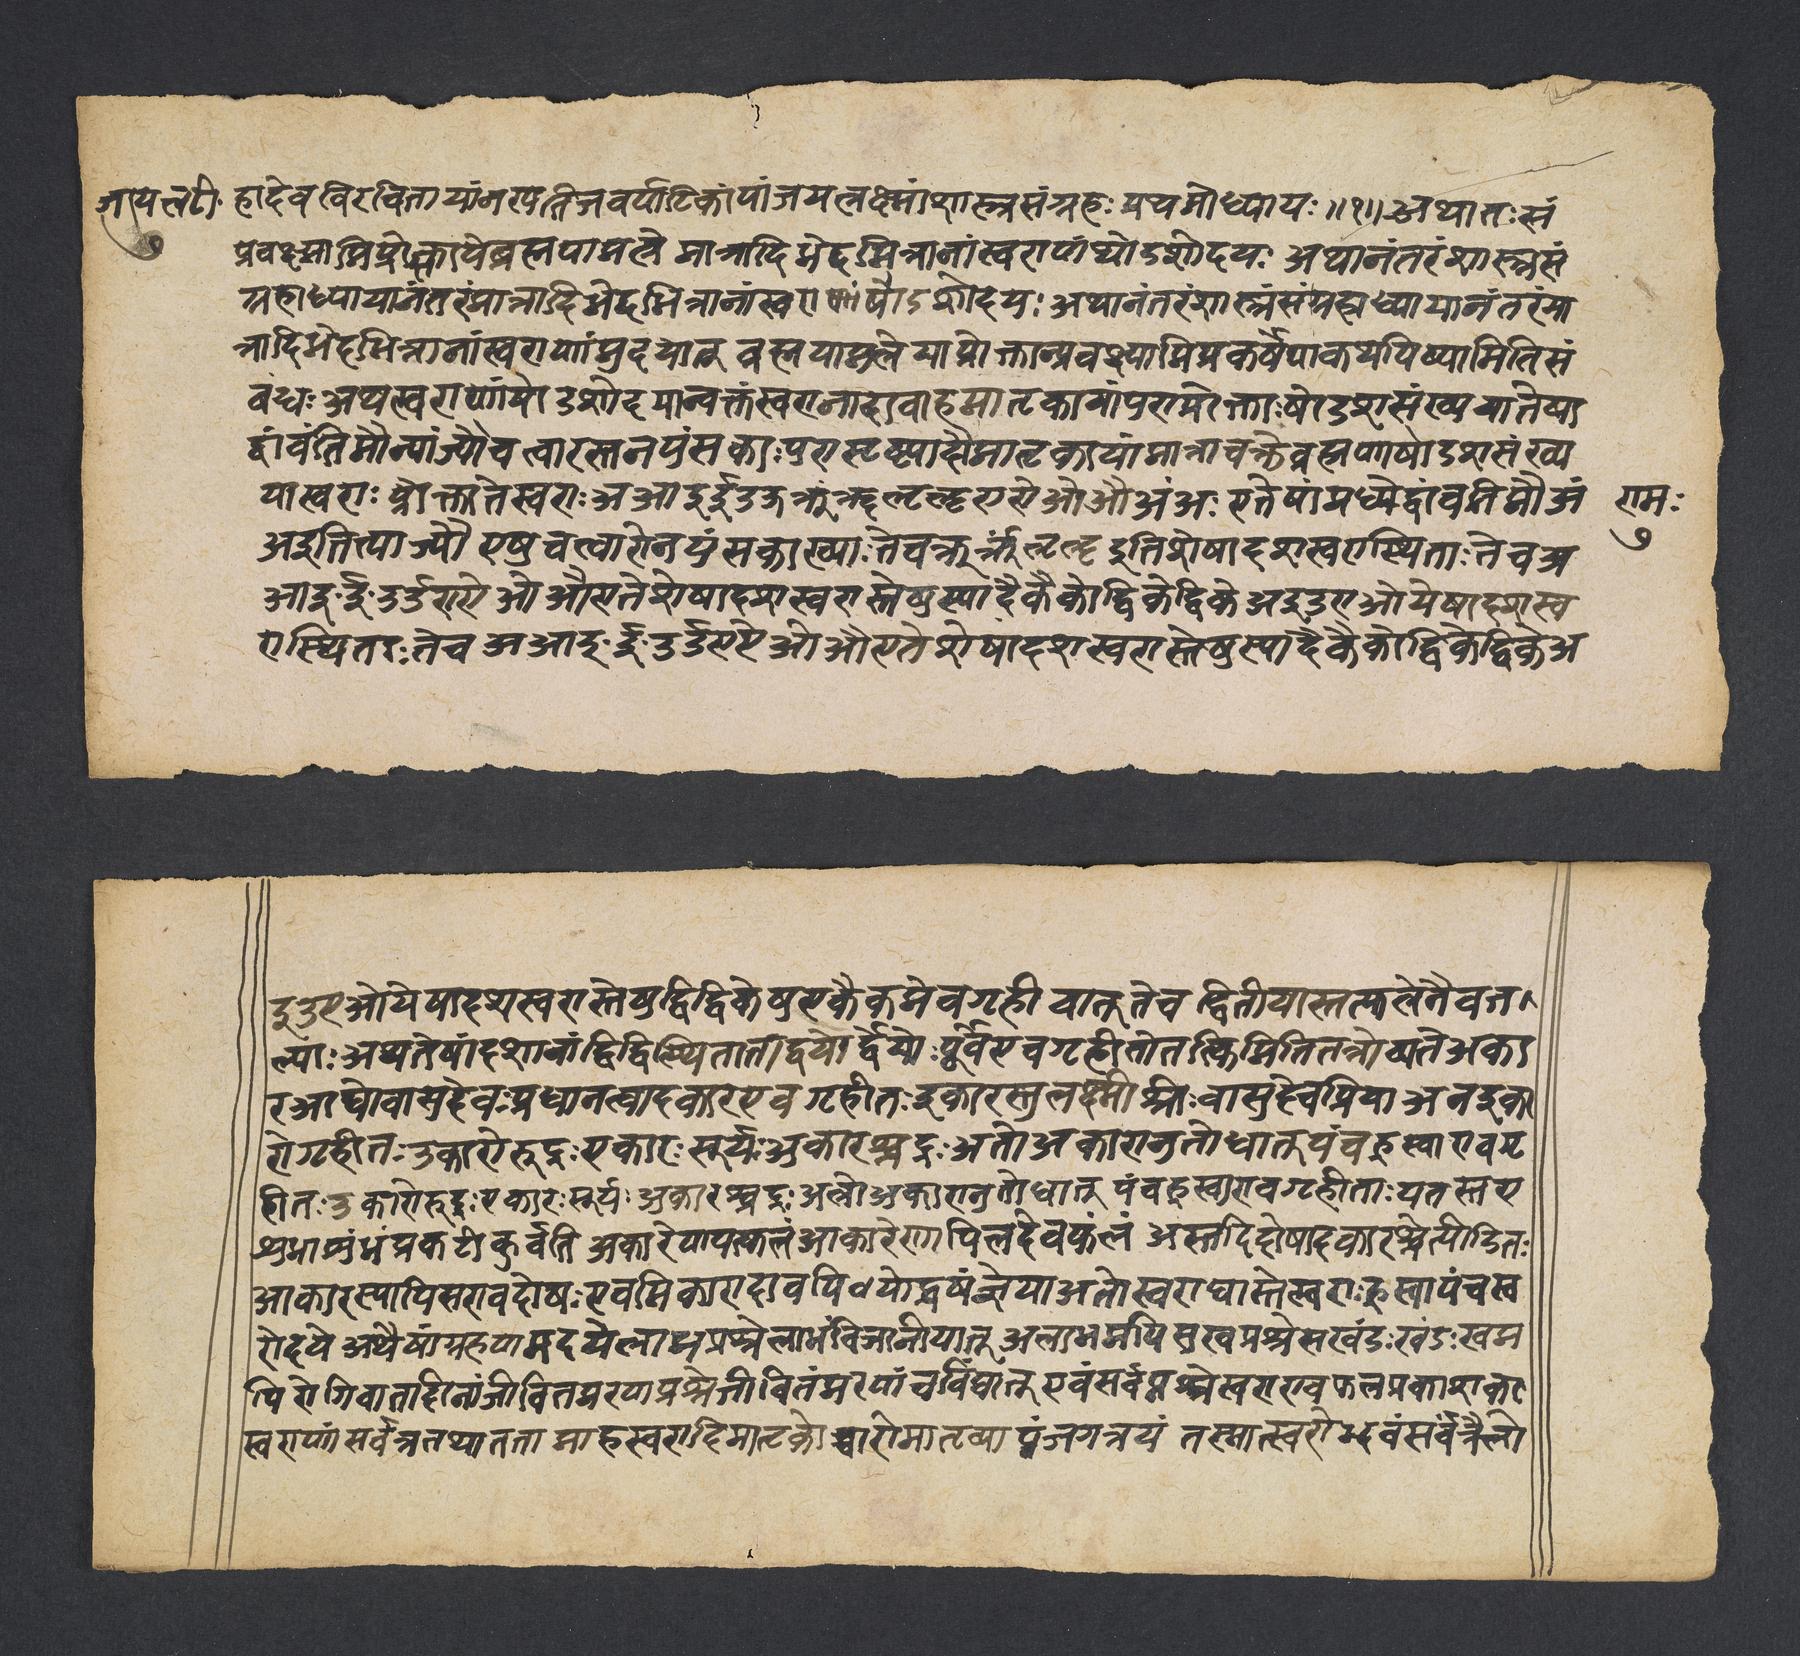 जयलटी. हादेवविरचितायांनरपतिजयचर्याटिकायांजयलक्ष्मांशास्त्रसंग्रहः प्रथमोध्यायः ॥१॥ अथातःसं
७
प्रवक्ष्यामि मात्रादिभेदभिन्नानांस्वराणांषोडशोदयः अथानंतरंशास्त्रसं
ग्रहाध्यायानंतरंमात्रादिभेदभिन्नानांस्वराणांषोडशोदयः अथानंतरंशास्त्रंसंग्रहाध्यायानंतरंमा
त्रादिभेदभिन्नानांस्वराणांमुदयान् ब्रह्मयामले याप्रोक्तान्प्रवक्ष्यामिप्रकर्षेणकथयिष्यामितिसं
बंधः अथस्वराणांषोडशोदयान्वक्तंस्वरानादावाह मातृकायांपुराप्रोक्ताःषोडशसंख्ययातेषा
द्वांवंतिमौत्याज्यौचत्वारस्तनपुंसकाः पुरासृष्ट्यादौमातृकायांमात्राचक्रेब्रह्मणाषोडशसंख्य
यास्वराः प्रोक्तातेस्वराः अआइईउऊऋॠऌॡएऐओऔअंअः एतेषांमध्येद्वांवतिमौअं
राम:
७
अइतित्याज्यौ एषुचत्वारोनपुंसकाख्याःतेचऋॠऌॡइतिशेषादशस्वरास्थिताःतेचअ
आइ·ई·उऊएऐ ओऔएतेशेषादशस्वरास्तेषुस्यादेकैकोद्विकेद्विके अइउएओयेषादशस्व
रास्थिताःतेच अआइ·ई·उऊएऐ ओऔएतेशेषादशस्वरास्तेषुस्यादेकैकोद्विकेद्विकेअ
इउएओयेषादशस्वरास्तेषुद्विद्विकेषुएकैकमेवगहीयात् तेच द्वितीयास्तत्फलेनैवज्ञा
ल्याः अथतेषांदशानांद्विद्विस्थिताताद्वयोर्द्वयोःपूर्वएवगृहीतोतत्किमितितत्रोच्यतेअका
रआद्योवासुदेवःप्रधानत्वादकारएवगृहीतःइकारस्तुलक्ष्मी श्रीःवासुदेवप्रियाअतइका
रोगृहीतःउकारोरुद्रःएकारःसूर्यःअकारश्चंद्रःअतोअकारानुतोधातूपंचह्रस्वाएवगृ
हीतःउकारोरुद्रःएकारःसूर्यःअकारश्चंद्रः अतोअकारानुतोधातूपंचह्रस्वाएवगृहीताःयतस्तए
शुभाशुभंप्रकटीकुर्वंति अकारेणयत्फलंआकारेणापिलदेवफलं अस्तदिदोषादकारश्चेत्पीडितः
आकारस्यापिसएवदोषःएवमिकारादावपि ज्ञेयाअतोस्वराद्यास्तेस्वराःह्रस्वापंचस्व
रोदये अथैषांग्रहणमुदयेलाभप्रश्नेलाभंविजानीयात् अलाभमपि सुखप्रश्नेसखंडःखंडःखम
पि रोगिवातादिनांजीवितमरणप्रश्नेजीवितंमरणंच एवंसर्वप्रश्नेस्वराएवफलप्रकाशका
स्वराणांसर्वत्रतथातता माहस्वरादिमातृकोच्चारोमातृव्याप्तंजगत्रयं तस्मात्स्वरोद्भवंसर्वंत्रैलो